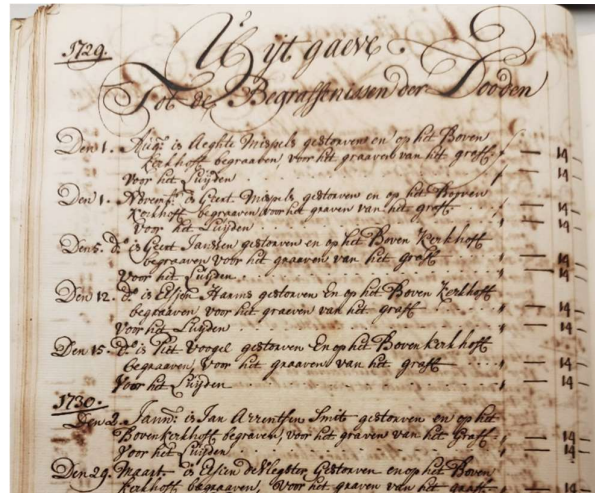 1729.
Uijtgaeve.
Tot de Begraffenissen der Dooden
Den 1. Aug: is Aeghte Mispels gestorven en op het Boven
kerkhoff begraaven voor het graaven van het graft / — 14 —
voor het Luijden . . . — 14 —
Den 1. Novemb: is Geert Mispels gestorven en op het Boven
kerkhoff begraaven voor het graven van het graft . — 14 —
voor het Luijden . . . . — 14 —
Den 5. do is Geert Janssen gestorven en op het Boven Kerkhoff
begraaven voor het graaven van het graft — 14 —
voor het Luijden . . . — 14 —
Den 12. do is Elsjen Haarms gestorven En op het Boven Kerkhoff
begraaven voor het graeven van het graft . . . — 14 —
voor het Luijden . . . . — 14 —
Den 15. do is Piet Voogel gestorven En op het Boven kerkhoff
begraaven, voor het graaven van het graft . . — 14 —
voor het Luijden . . . . — 14 —
1730.
Den 2. Janu: is Jan Arrentsen Smits gestorven en op het
Bovenkerkhoff begraven, voor het graven van het graft — 14 —
voor het Luijden . . . . — 14 —
Den 29. Maart is Elsien gestorven en op het Boven
kerkhoff begraaven, voor het graaven van het graft — 14